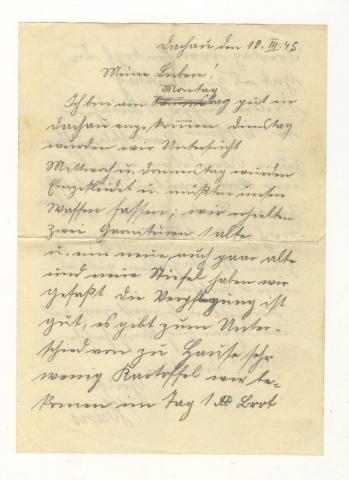 Dachau den 10. III. 45.
Meine Lieben!
Montag
Ich bin am Samstag gut in
Dachau angekommen dinstag
wurden wir Untersucht
Mittwoch u. Donnerstag wurden
Eingekleidet u. mußten unsere
Waffen fassen; wir erhielten
zwei Garnituren 1 alte
u. eine neue, auch paar alte
und neue Stiefel haben wir
gefaßt die Verpflegung ist
gut, es gibt zum Unter-
schied von zu Hause sehr
wenig Kartoffel wir be-
kommen im Tag 1 Brot